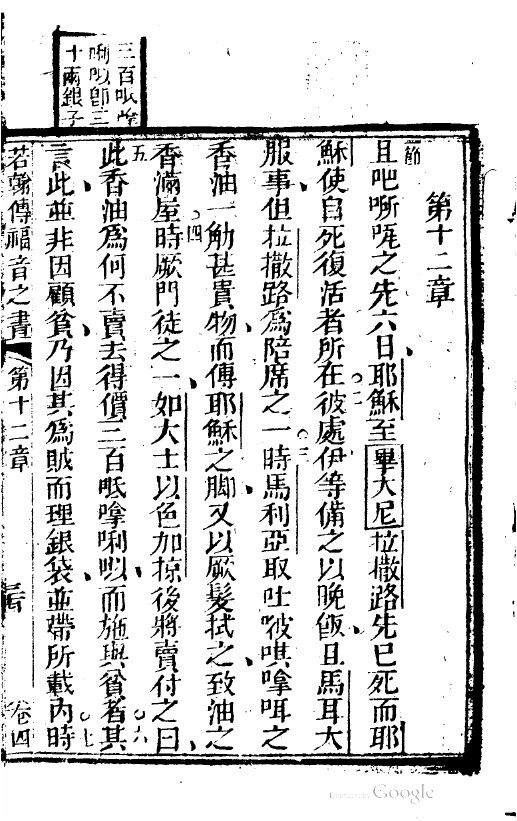 三百呧嗱
唎㕥即三
十兩銀子
第十二章
節且吧嘶㖿之先六日耶穌至畢大尼拉撒路先已死而耶
穌使自死復活者所在○二彼處伊等備之以晚飯且馬耳大
服事但拉撒路為陪席之一○三時馬利亞取吐㖕唭嗱咡之
香油一觔甚貴物而傅耶穌之脚又以厥髮拭之致油之
香滿屋○四時厥門徒之一如大士以色加掠後將賣付之曰
五此香油為何不賣去得價三百呧嗱唎㕥而施與貧者○六其
言此並非因顧貧乃因其為賊而理銀袋並帶所載內○七時
若翰傳福音之書 第十二章 卷四
Digitized by Google